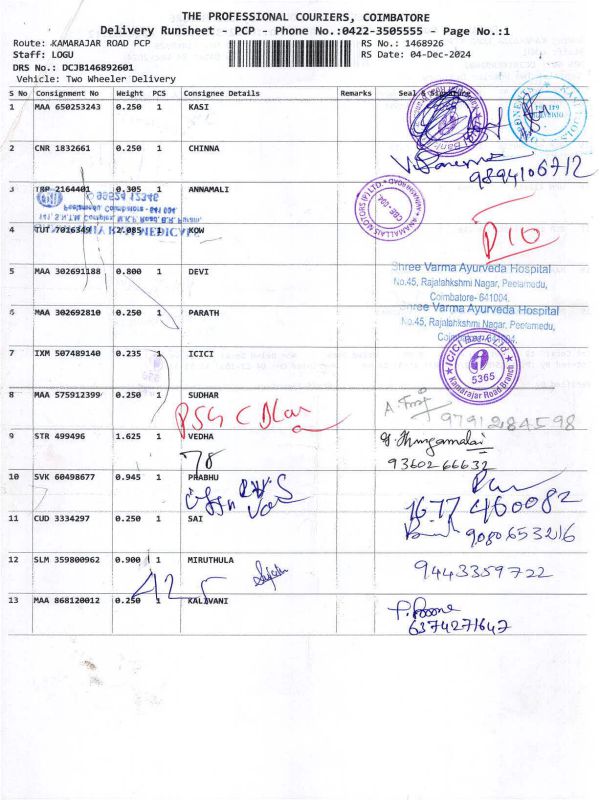 THE PROFESSIONAL COURIERS, COIMBATORE
Delivery Runsheet - PCP - Phone No.:0422-3505555 - Page No.:1
Route: KAMARAJAR ROAD PCP RS No.: 1468926
Staff: LOGU RS Date: 04-Dec-2024
DRS No.: DCJB146892601
Vehicle: Two Wheeler Delivery
S No Consignment No Weight PCS Consignee Details Remarks Seal & Signature
1 MAA 650253243 0.250 1 KASI
2 CNR 1832661 0.250 1 CHINNA
9894106712
3 TRP 2164401 0.305 1 ANNAMALI
ANAMALLAIS MOTORS (P) LTD.
99524 12346
Peelamedu, Coimbatore - 641 004.
4 TUT 7016349 2.085 1 KOW
5 MAA 302691188 0.800 1 DEVI
Shree Varma Ayurveda Hospital
No.45, Rajalahkshmi Nagar, Peelamedu,
Coimbatore- 641004.
6 MAA 302692810 0.250 1 PARATH
Shree Varma Ayurveda Hospital
No.45, Rajalahkshmi Nagar, Peelamedu,
7 IXM 507489140 0.235 1 ICICI
ICICI Bank Ltd
5365
Kamarajar Road Branch
8 MAA 575912399 0.250 1 SUDHAR
9791284598
9 STR 499496 1.625 1 VEDHA
78
9360266632
10 SVK 60498677 0.945 1 PRABHU
11 CUD 3334297 0.250 1 SAI
9080653216
12 SLM 359800962 0.900 1 MIRUTHULA
9443359722
13 MAA 868120012 0.250 1 KALAVANI
6374271647